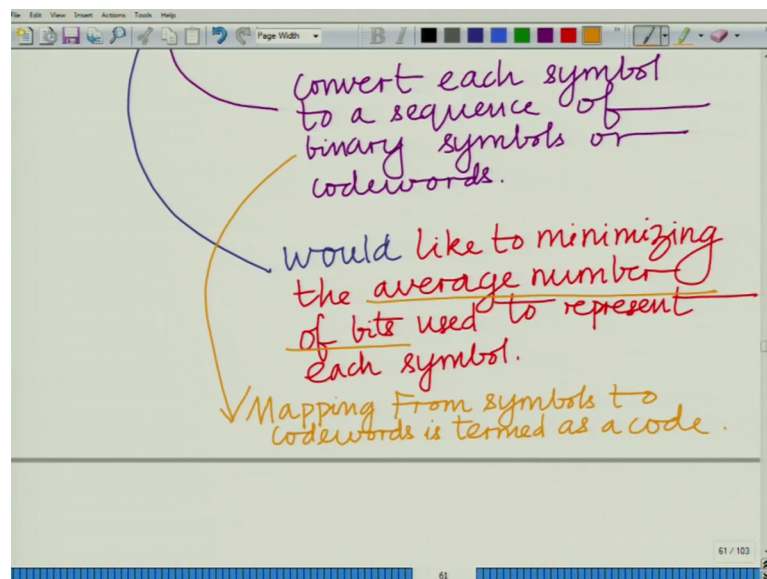 File Edit View Insert Actions Tools Help
Page Width
B I
Convert each symbol
to a sequence of
binary symbols or
codewords.
would like to minimizing
the average number
of bits used to represent
each symbol.
Mapping From symbols to
codewords is termed as a code.
61 / 103
61